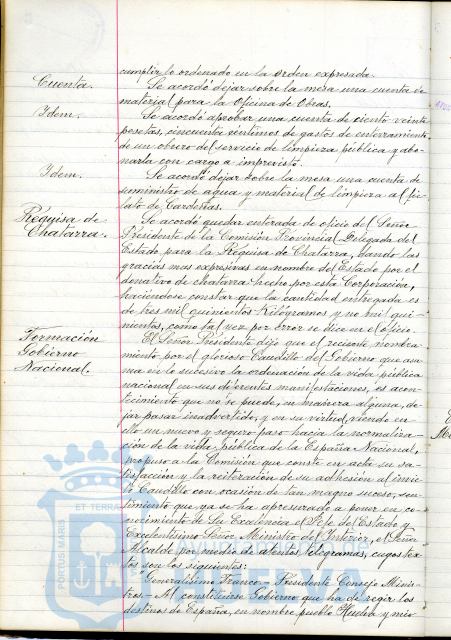 cumplir lo ordenado en la orden expresada.
Cuenta.
Se acordó dejar sobre la mesa una cuenta de
material para la Oficina de Obras.
Idem.
Se acordó aprobar una cuenta de ciento veinte
pesetas, cincuenta céntimos de gastos de enterramiento
de un obrero del servicio de limpieza pública y abo-
narla con cargo a imprevisto.
Idem.
Se acordó dejar sobre la mesa una cuenta de
suministro de agua y material de limpieza al fie-
lato de Cardeñas.
Requisa de
Chatarra.
Se acordó quedar enterada de oficio del Señor
Presidente de la Comisión Provincial Delegada del
Estado para la Requisa de Chatarra, dando las
gracias mas expresivas en nombre del Estado por el
donativo de chatarra hecho por esta Corporación,
haciéndose constar que la cantidad entregada es
de tres mil quinientos Kilógramos y no mil qui-
nientos, como tal vez por error se dice en el oficio.
Formación
Gobierno
Nacional.
El Señor Presidente dijo que el reciente nombra-
miento por el glorioso Caudillo del Gobierno que asu-
ma en lo sucesivo la ordenación de la vida pública
nacional en sus diferentes manifestaciones, es acon-
tecimiento que no se puede, en manera alguna, de-
jar pasar inadvertido, y en su virtud, viendo en
ello un nuevo y seguro paso hacia la normaliza-
ción de la vida pública de la España Nacional,
propuso a la Comisión que conste en acta su sa-
tisfacción y la reiteración de su adhesión al invic-
to Caudillo con ocasión de tan magno suceso, sen-
timiento que ya se ha apresurado a poner en co-
nocimiento de Su Excelencia el Jefe del Estado y
Excelentísimo Señor Ministro del Interior, el Señor
Alcalde por medio de atentos telegramas, cuyos tex-
tos son los siguientes:
Generalísimo Franco - Presidente Consejo Minis-
tros - Al constituirse Gobierno que ha de regir los
destinos de España, en nombre pueblo Huelva y mio
PORTUS MARIS
ET TERRAE